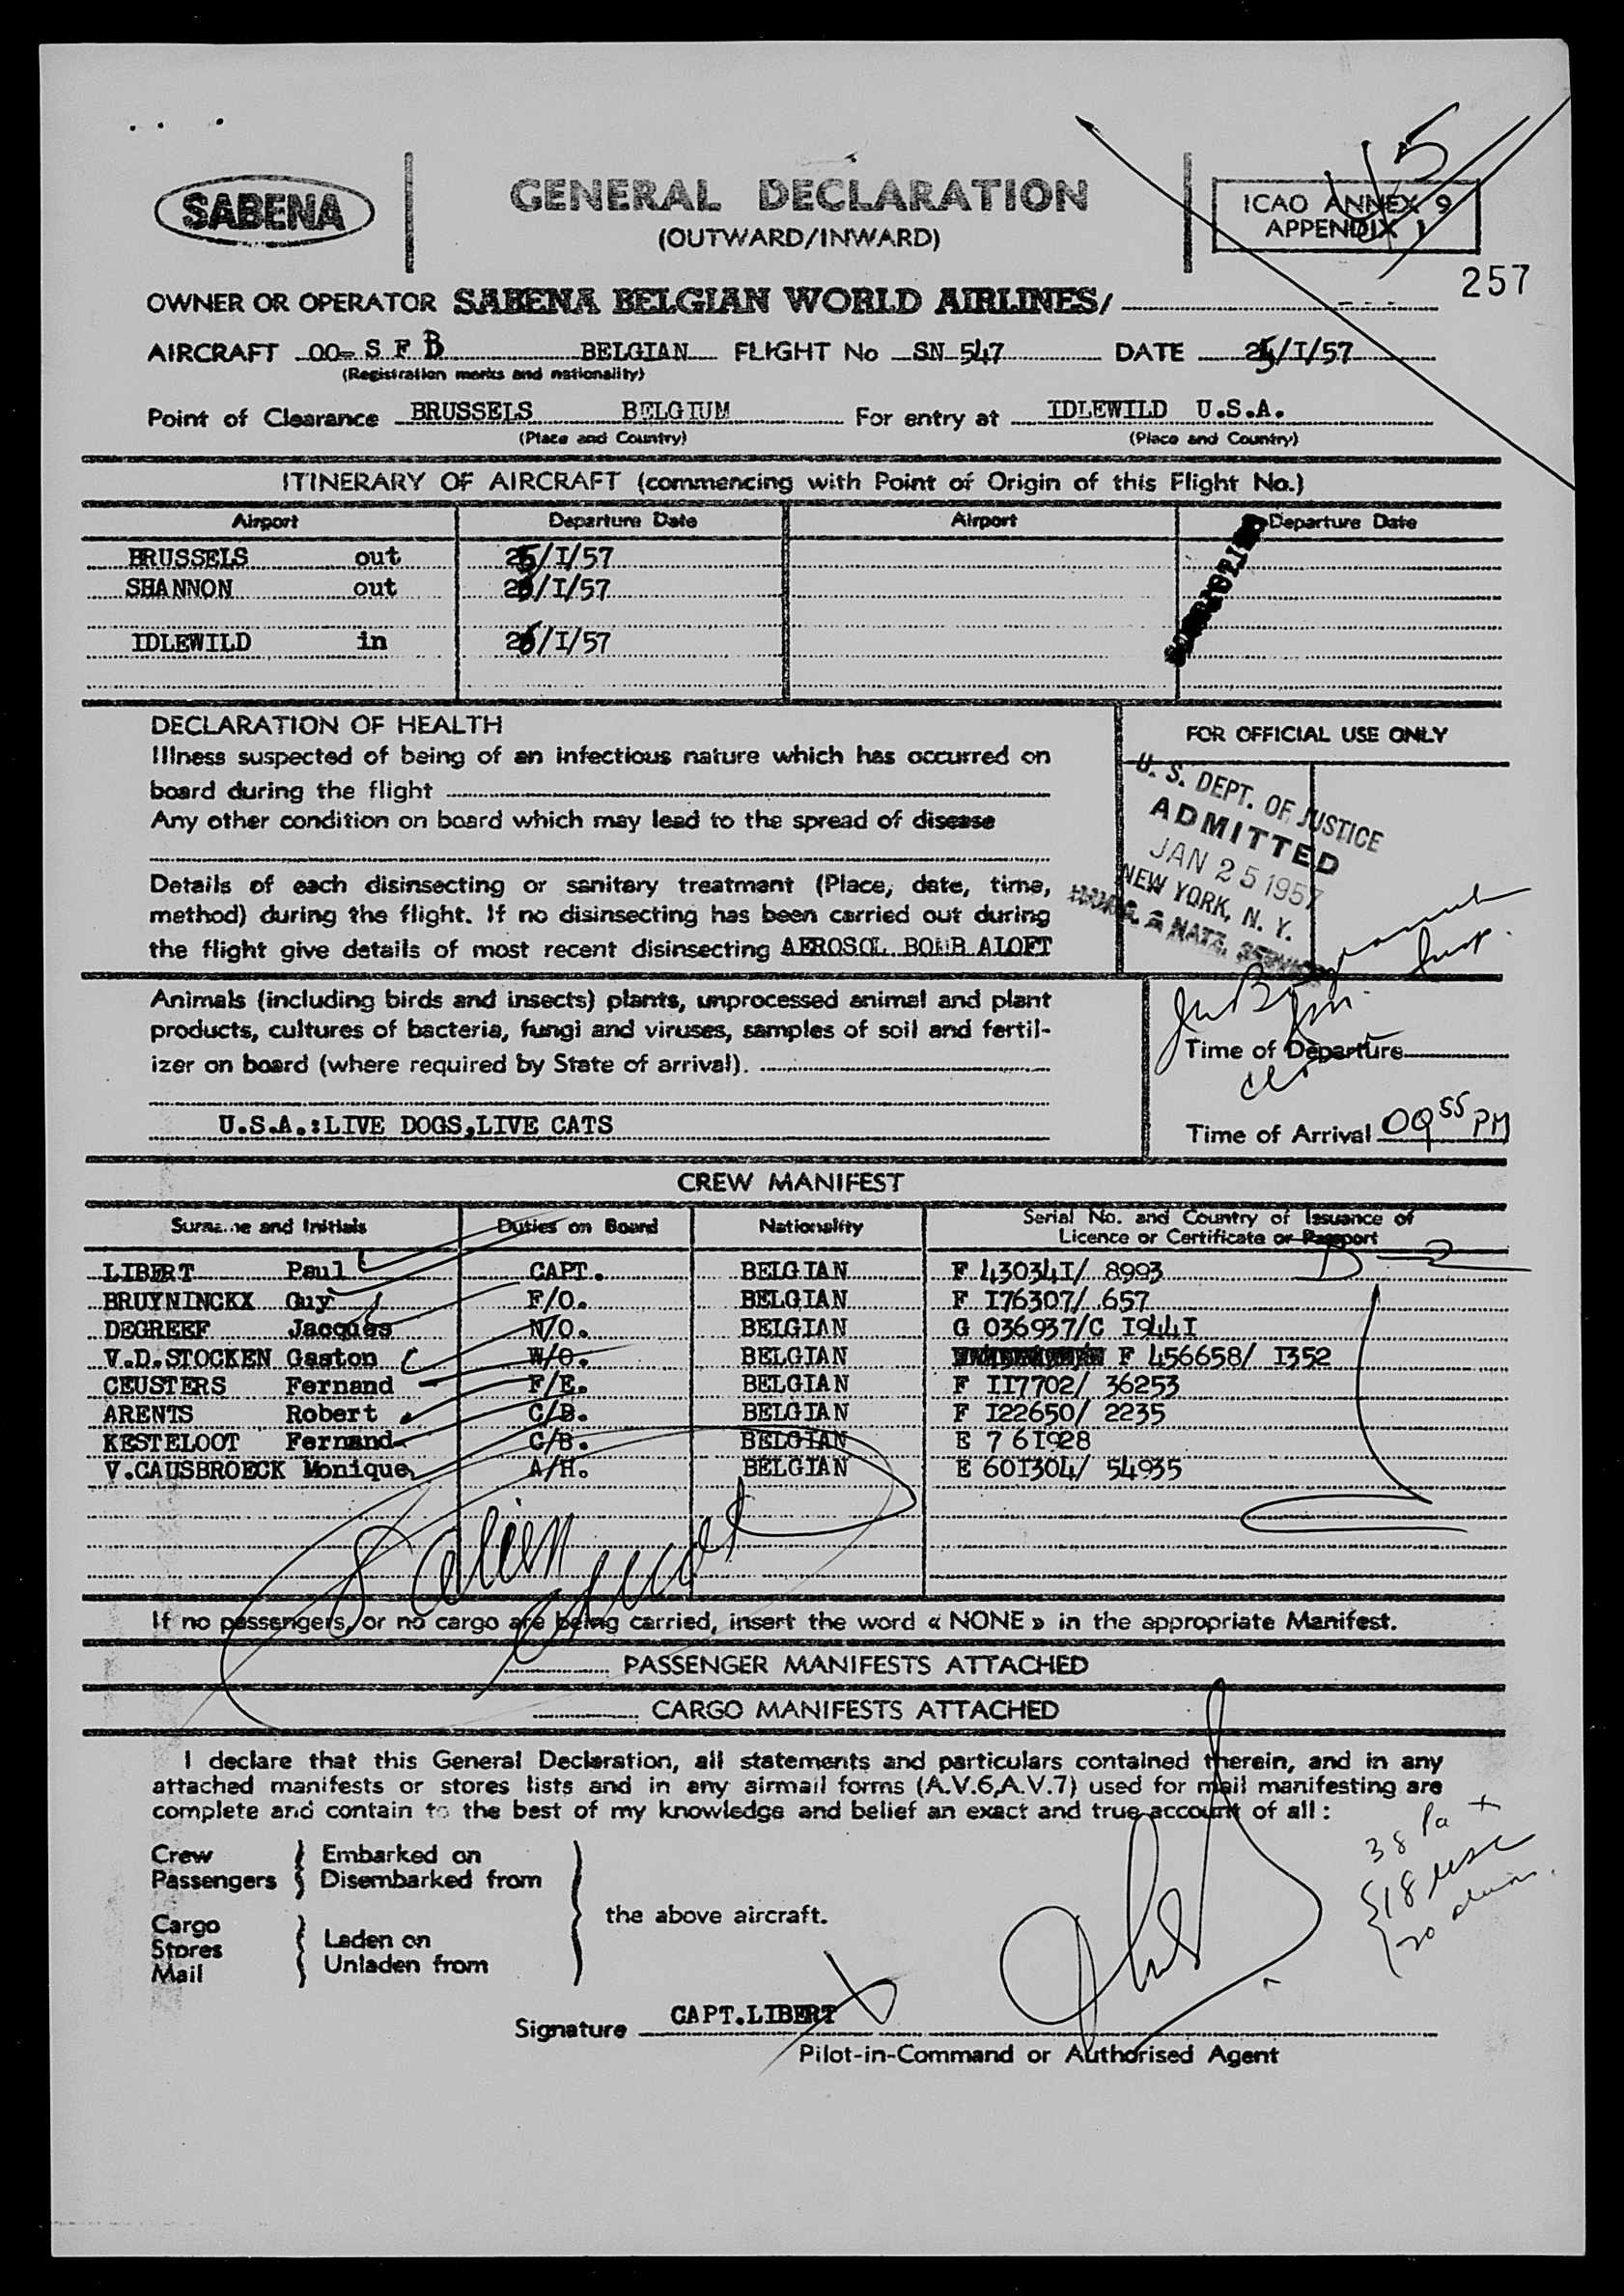 SABENA
GENERAL DECLARATION
(OUTWARD/INWARD)
ICAO ANNEX 9
APPENDIX 1
15
257
OWNER OR OPERATOR SABENA BELGIAN WORLD AIRLINES/
AIRCRAFT OO-SFB BELGIAN FLIGHT No SN 547 DATE 25/I/57
(Registration marks and nationality)
Point of Clearance BRUSSELS BELGIUM For entry at IDLEWILD U.S.A.
(Place and Country) (Place and Country)
ITINERARY OF AIRCRAFT (commencing with Point of Origin of this Flight No.)
Airport Departure Date Airport Departure Date
BRUSSELS out 25/I/57
SHANNON out /I/57
IDLEWILD in /I/57
DECLARATION OF HEALTH
Illness suspected of being of an infectious nature which has occurred on
board during the flight
Any other condition on board which may lead to the spread of disease
Details of each disinsecting or sanitary treatment (Place, date, time,
method) during the flight. If no disinsecting has been carried out during
the flight give details of most recent disinsecting AEROSOL BOMB ALOFT
FOR OFFICIAL USE ONLY
U. S. DEPT. OF JUSTICE
ADMITTED
JAN 25 1957
NEW YORK, N. Y.
IMMIG. & NATZ. SERVICE
Animals (including birds and insects) plants, unprocessed animal and plant
products, cultures of bacteria, fungi and viruses, samples of soil and fertil-
izer on board (where required by State of arrival).
U.S.A.:LIVE DOGS,LIVE CATS
Time of Departure
Time of Arrival 09 55 PM
CREW MANIFEST
Surname and Initials Duties on Board Nationality Serial No. and Country of Issuance of
Licence or Certificate or Passport
LIBERT Paul CAPT. BELGIAN F 43034I/ 8993
BRUYNINCKX Guy F/O. BELGIAN F I76307/ 657
DEGREEF Jacques N/O. BELGIAN G 036937/C I944I
V.D.STOCKEN Gaston W/O. BELGIAN F 456658/ I352
CEUSTERS Fernand F/E. BELGIAN F II7702/ 36253
ARENTS Robert C/B. BELGIAN F I22650/ 2235
KESTELOOT Fernand C/B. BELGIAN E 7 6I928
V.CAUSBROECK Monique A/H. BELGIAN E 60I304/ 54935
8 alien
If no passengers, or no cargo are being carried, insert the word « NONE » in the appropriate Manifest.
PASSENGER MANIFESTS ATTACHED
CARGO MANIFESTS ATTACHED
I declare that this General Declaration, all statements and particulars contained therein, and in any
attached manifests or stores lists and in any airmail forms (A.V.6,A.V.7) used for mail manifesting are
complete and contain to the best of my knowledge and belief an exact and true account of all :
Crew Embarked on
Passengers Disembarked from
the above aircraft.
Cargo
Stores Laden on
Mail Unladen from
38 Pax
18 usc
20 aliens
Signature CAPT.LIBERT
Pilot-in-Command or Authorised Agent